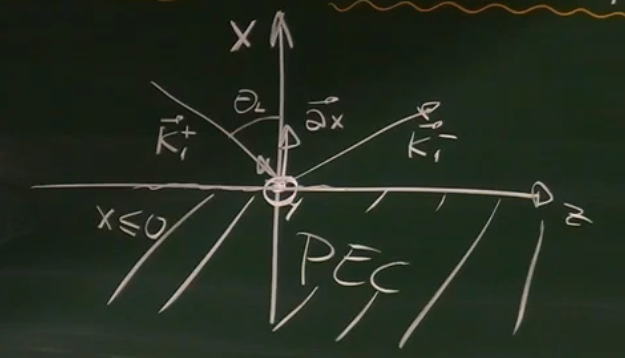 X
θ_L
a⃗x
K⃗₁⁺
K⃗₁⁻
y
z
x≤0
PEC